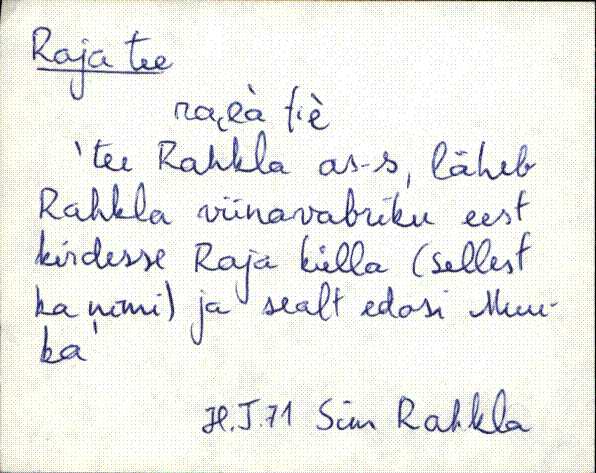 Raja tee
'tee Rahkla as-s, läheb
Rahkla viinavabriku eest
kirdesse Raja külla (sellest
ka nimi) ja sealt edasi Muu-
ka'
H.J.71 Sim Rahkla